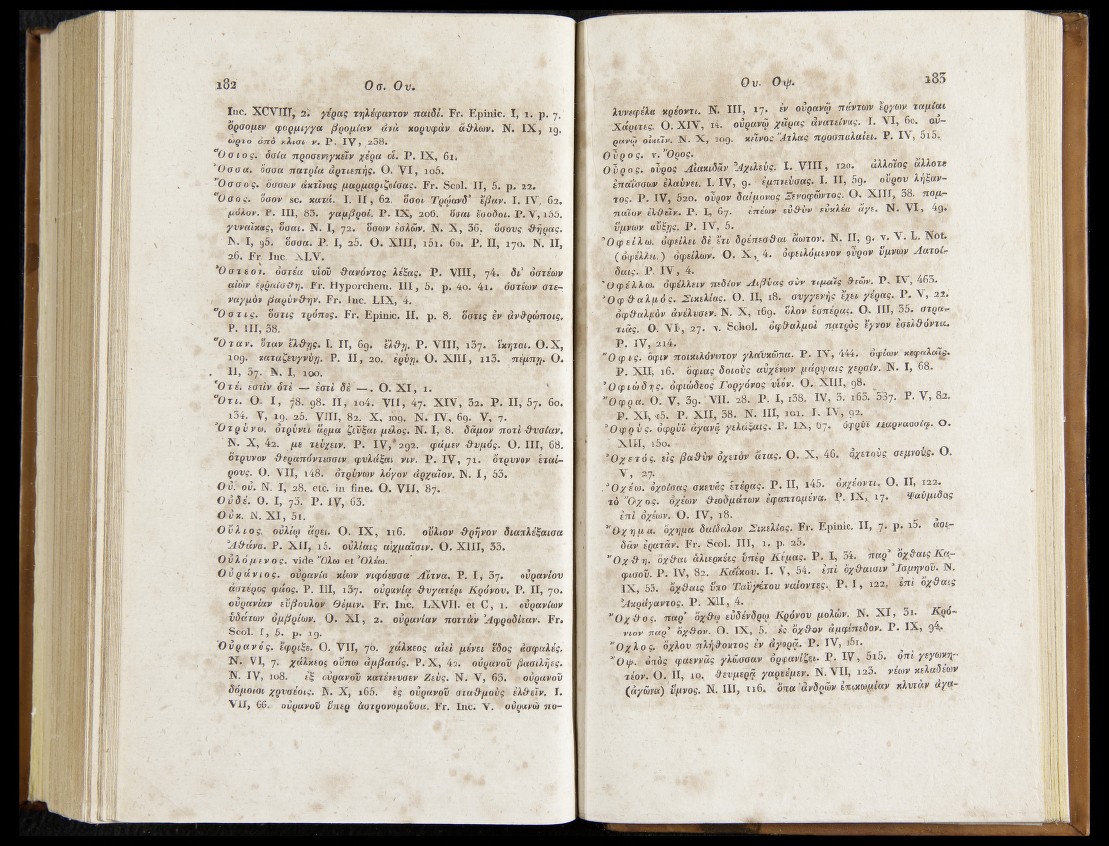 182 Οσ. Ου.
Inc. XCVIII, 2. γέρας τηλέφαντον παιδί. Fr. Epinic. I, 1. p. 7.
ὄρσομεν φορμιγγα βρομίαν ἀνὰ κορυφὰν ἀέθλων. N. IX, 19.
P. IV, 238.
Ὅσιος. ὁσία προσενεγκεῖν χέρα οἱ. P. IX, 61.
Ὄσσα. ὄσσα πατρία ἀρτιεπής. O. VI, 105.
Ὄσσος. ὄσσων ἀκτῖνας μαρμαριζοίσας. Fr. Scol. II, 5. p. 22.
Ὅσος. ὅσον sc. κατά. I. II, 62. ὅσοι Τρῴανδ’ ἔβαν. I. IV, 62.
μόλον. P. III, 83. γαμβροί. P. IX, 206. ὅσαι ἔσοδοι. P. V, 155.
γυναῖκας, ὅσαι. N. I, 72. ὅσων ἐσλῶν. N. X, 36. ὅσους θῆρας.
N. I, 95. ὅσσα. P. I, 25. O. XIII, 151. 60. P. II, 170. N. II,
26. Fr. Inc. XLV.
Ὀστέον. ὀστέα υἱοῦ θανόντος λέξας. P. VIII, 74. δι’ ὀστέων
αἰὼν ἐρραίσθη. Fr. Hyporchem. III, 5. p. 40. 41. ὀστέων στε-
ναγμὸν βαρὺνθην. Fr. Inc. LIX, 4.
Ὅστις. ὅστις τρόπος. Fr. Epinic. II. p. 8. ὅστις ἐν ἀνθρώποις.
P. III, 38.
Ὅταν. ὅταν ἔλθῃς. I. II, 69. ἔλθῃ. P. VIII, 137. ἵκηται. O. X,
109. καταζευγνύῃ. P. II, 20. ἐρύῃ. O. XIII, 113. πέμπῃ. O.
II, 37. N. I, 100.
Ὅτέ. ἐστὶν ὅτὲ — ἐστὶ δὲ —. O. XI, 1.
Ὅτι. O. I, 78. 98. II, 104. VII, 47. XIV, 32. P. II, 57. 60.
134. V, 19. 25. VIII, 82. X, 109. N. IV, 69. V, 7.
Ὀτρύνω. ὀτρύνει ἅρμα ζεῦξαι μέλος. N. I, 8. δάμον ποτὶ θυσίαν.
N. X, 42. με τεύχειν. P. IV, 292. φάμεν θυμός. O. III, 68.
ὄτρυνον θεραπόντισσιν φυλάξαι νιν. P. IV, 71. ὄτρυνον ἑταί-
ρους. O. VII, 148. ὀτρύνων λόγον ἀρχαῖον. N. I, 53.
Οὐ. οὔ. N. I, 28. etc. in fine. O. VII, 87.
Οὐδέ. O. I, 73. P. IV, 63.
Οὐκ. N. XI, 51.
Οὔλιος. οὐλίῳ ἄρει. O. IX, 116. οὔλιον θρῆνον διαπλέξαισα
Ἀθάνα. P. XII, 15. οὐλίαις αἰχμαῖσιν. O. XIII, 33.
Οὐλόμενος. vide Ὄλω et Ὀλέω.
Οὐράνιος. οὐρανία κίων νιφόεσσα Αἴτνα. P. I, 37. οὐρανίου
ἀστέρος φάος. P. III, 137. οὐρανίᾳ θυγατέρι Κρόνου. P. II, 70.
οὐρανίαν εὔβουλον Θέμιν. Fr. Inc. LXVII. et C, 1. οὐρανίων
ὑδάτων ὀμβρίων. O. XI, 2. οὐρανίαν ποττὰν Ἀφροδίταν. Fr.
Scol. I, 5. p. 19.
Οὐρανός. ἔφριξε. O. VII, 70. χάλκεος αἰεὶ μένει ἕδος ἀσφαλές.
N. VI, 7. χάλκεος οὔπω ἀμβατός. P. X, 42. οὐρανοῦ βασιλῆες.
N. IV, 108. ἐξ οὐρανοῦ κατένευσεν Ζεύς. N. V, 63. οὐρανοῦ
δόμοισι χρυσέοις. N. X, 165. ἐς οὐρανοῦ σταθμοὺς ἐλθεῖν. I.
VII, 66. οὐρανοῦ ὕπερ ἀστρονομοῦσα. Fr. Inc. V. οὐρανῷ πο-
Ου. Οψ. 183
λυνεφέλα κρέοντι. N. III, 17. ἐν οὐρανῷ πάντων ἔργων ταμίαι
Χάριτες. O. XIV, 14. οὐρανῷ χεῖρας ἀνατείνας. I. VI, 60. οὐ-
ρανῷ οἰκεῖν. N. X, 109. κεῖνος Ἄτλας προσπαλαίει. P. IV, 515.
Οὖρος. v. Ὄρος.
Οὖρος. οὖρος Αἰακιδᾶν Ἀχιλεύς. I. VIII, 120. ἀλλοῖος ἄλλοτε
ἐπαΐσσων ἐλαύνει. I. IV, 9. ἐμπνεύσας. I. II, 59. οὔρου λήξαν-
τος. P. IV, 520. οὖρον δαίμονος Ξενοφῶντος. O. XIII, 38. πομ-
παῖον ἐλθεῖν. P. I, 67. ἐπέων εὐθὺν εὐκλέα ἄγε. N. VI, 49.
ὕμνων αὔξῃς. P. IV, 5.
Ὀφείλω. ὀφείλει δὲ ἔτι δρέπεσθαι ἄωτον. N. II, 9. v. V. L. Not.
(ὀφέλλει.) ὀφείλων. O. X, 4. ὀφειλόμενον οὖρον ὕμνων Λατοΐ-
δαις. P. IV, 4.
Ὀφέλλω. ὀφέλλειν πεδίον Λιβύας σὺν τιμαῖς θεῶν. P. IV, 463.
Ὀφθαλμός. Σικελίας. O. II, 18. συγγενὴς ἔχει γέρας. P. V, 22.
ὀφθαλμὸν ἀνέλυσεν. N. X, 169. ὅλον ἑσπέρας. O. III, 35. στρα-
τιᾶς. O. VI, 27. v. Schol. ὀφθαλμοὶ πατρὸς ἔγνον ἐσελθόντα.
P. IV, 214.
Ὄφις. ὄφιν ποικιλόνωτον γλαυκῶπα. P. IV, 444. ὀφίων κεφαλαῖς.
P. XII, 16. ὄφιας δοιοὺς αὐχένων μάρψαις χερσίν. N. I, 68.
Ὀφιώδης. ὀφιώδεος Γοργόνος υἱόν. O. XIII, 98.
Ὄφρα. O. V, 39. VII. 28. P. I, 138. IV, 3. 163. 337. P. V, 82.
P. XI, 15. P. XII, 38. N. III, 101. I. IV, 92.
Ὀφρύς. ὀφρύϊ ἀγανᾷ γελάξαις. P. IX, 67. ὀφρύϊ Παρνασσίᾳ. O.
XIII, 150.
Ὀχετός. εἰς βαθὺν ὀχετὸν ἄτας. O. X, 46. ὀχετοὺς σεμνούς. O.
V, 27.
Ὀχέω. ὀχοίσας σκευᾶς ἑτέρας. P. II, 145. ὀκχέοντι. O. II, 122.
τὸ Ὄχος. ὀχέων θεοδμάτων ἐφαπτομένα. P. IX, 17. Ψαύμιδος
ἐπὶ ὀχέων. O. IV, 18.
Ὄχημα. ὄχημα δαίδαλον Σικελίας. Fr. Epinic. II, 7. p. 15. ἀοι-
δᾶν ἐρατᾶν. Fr. Scol. III, 1. p. 25.
Ὄχθη. ὄχθαι ἁλιερκέες ὑπὲρ Κύμας. P. I, 34. παρ’ ὄχθαις Κα-
φισοῦ. P. IV, 82. Καΐκου. I. V, 54. ἐπὶ ὄχθαισιν Ἰσμηνοῦ. N.
IX, 53. ὄχθαις ὕπο Ταϋγέτου ναίοντες. P. I, 122. ἐπὶ ὄχθαις
Ἀκράγαντος. P. XII, 4.
Ὄχθος. παρ’ ὄχθῳ εὐδένδρῳ Κρόνου μολών. N. XI, 31. Κρό-
νιον παρ’ ὄχθον. O. IX, 5. ἐς ὄχθον ἀμφίπεδον. P. IX, 94.
Ὄχλος. ὄχλου πλήθοντος ἐν ἀγορᾷ. P. IV, 151.
Ὄψ. ὀπὸς φαεννᾶς γλῶσσαν ὀρφανίζει. P. IV, 515. ὀπὶ γεγωνη-
τέον. O. II, 10. θευμερᾷ γαρυέμεν. N. VII, 123. νέων κελαδέων
(ἀγῶνα) ὕμνος. N. III, 116. ὄπα ἀνδρῶν ἐπικωμίαν κλυτὰν ἀγα-